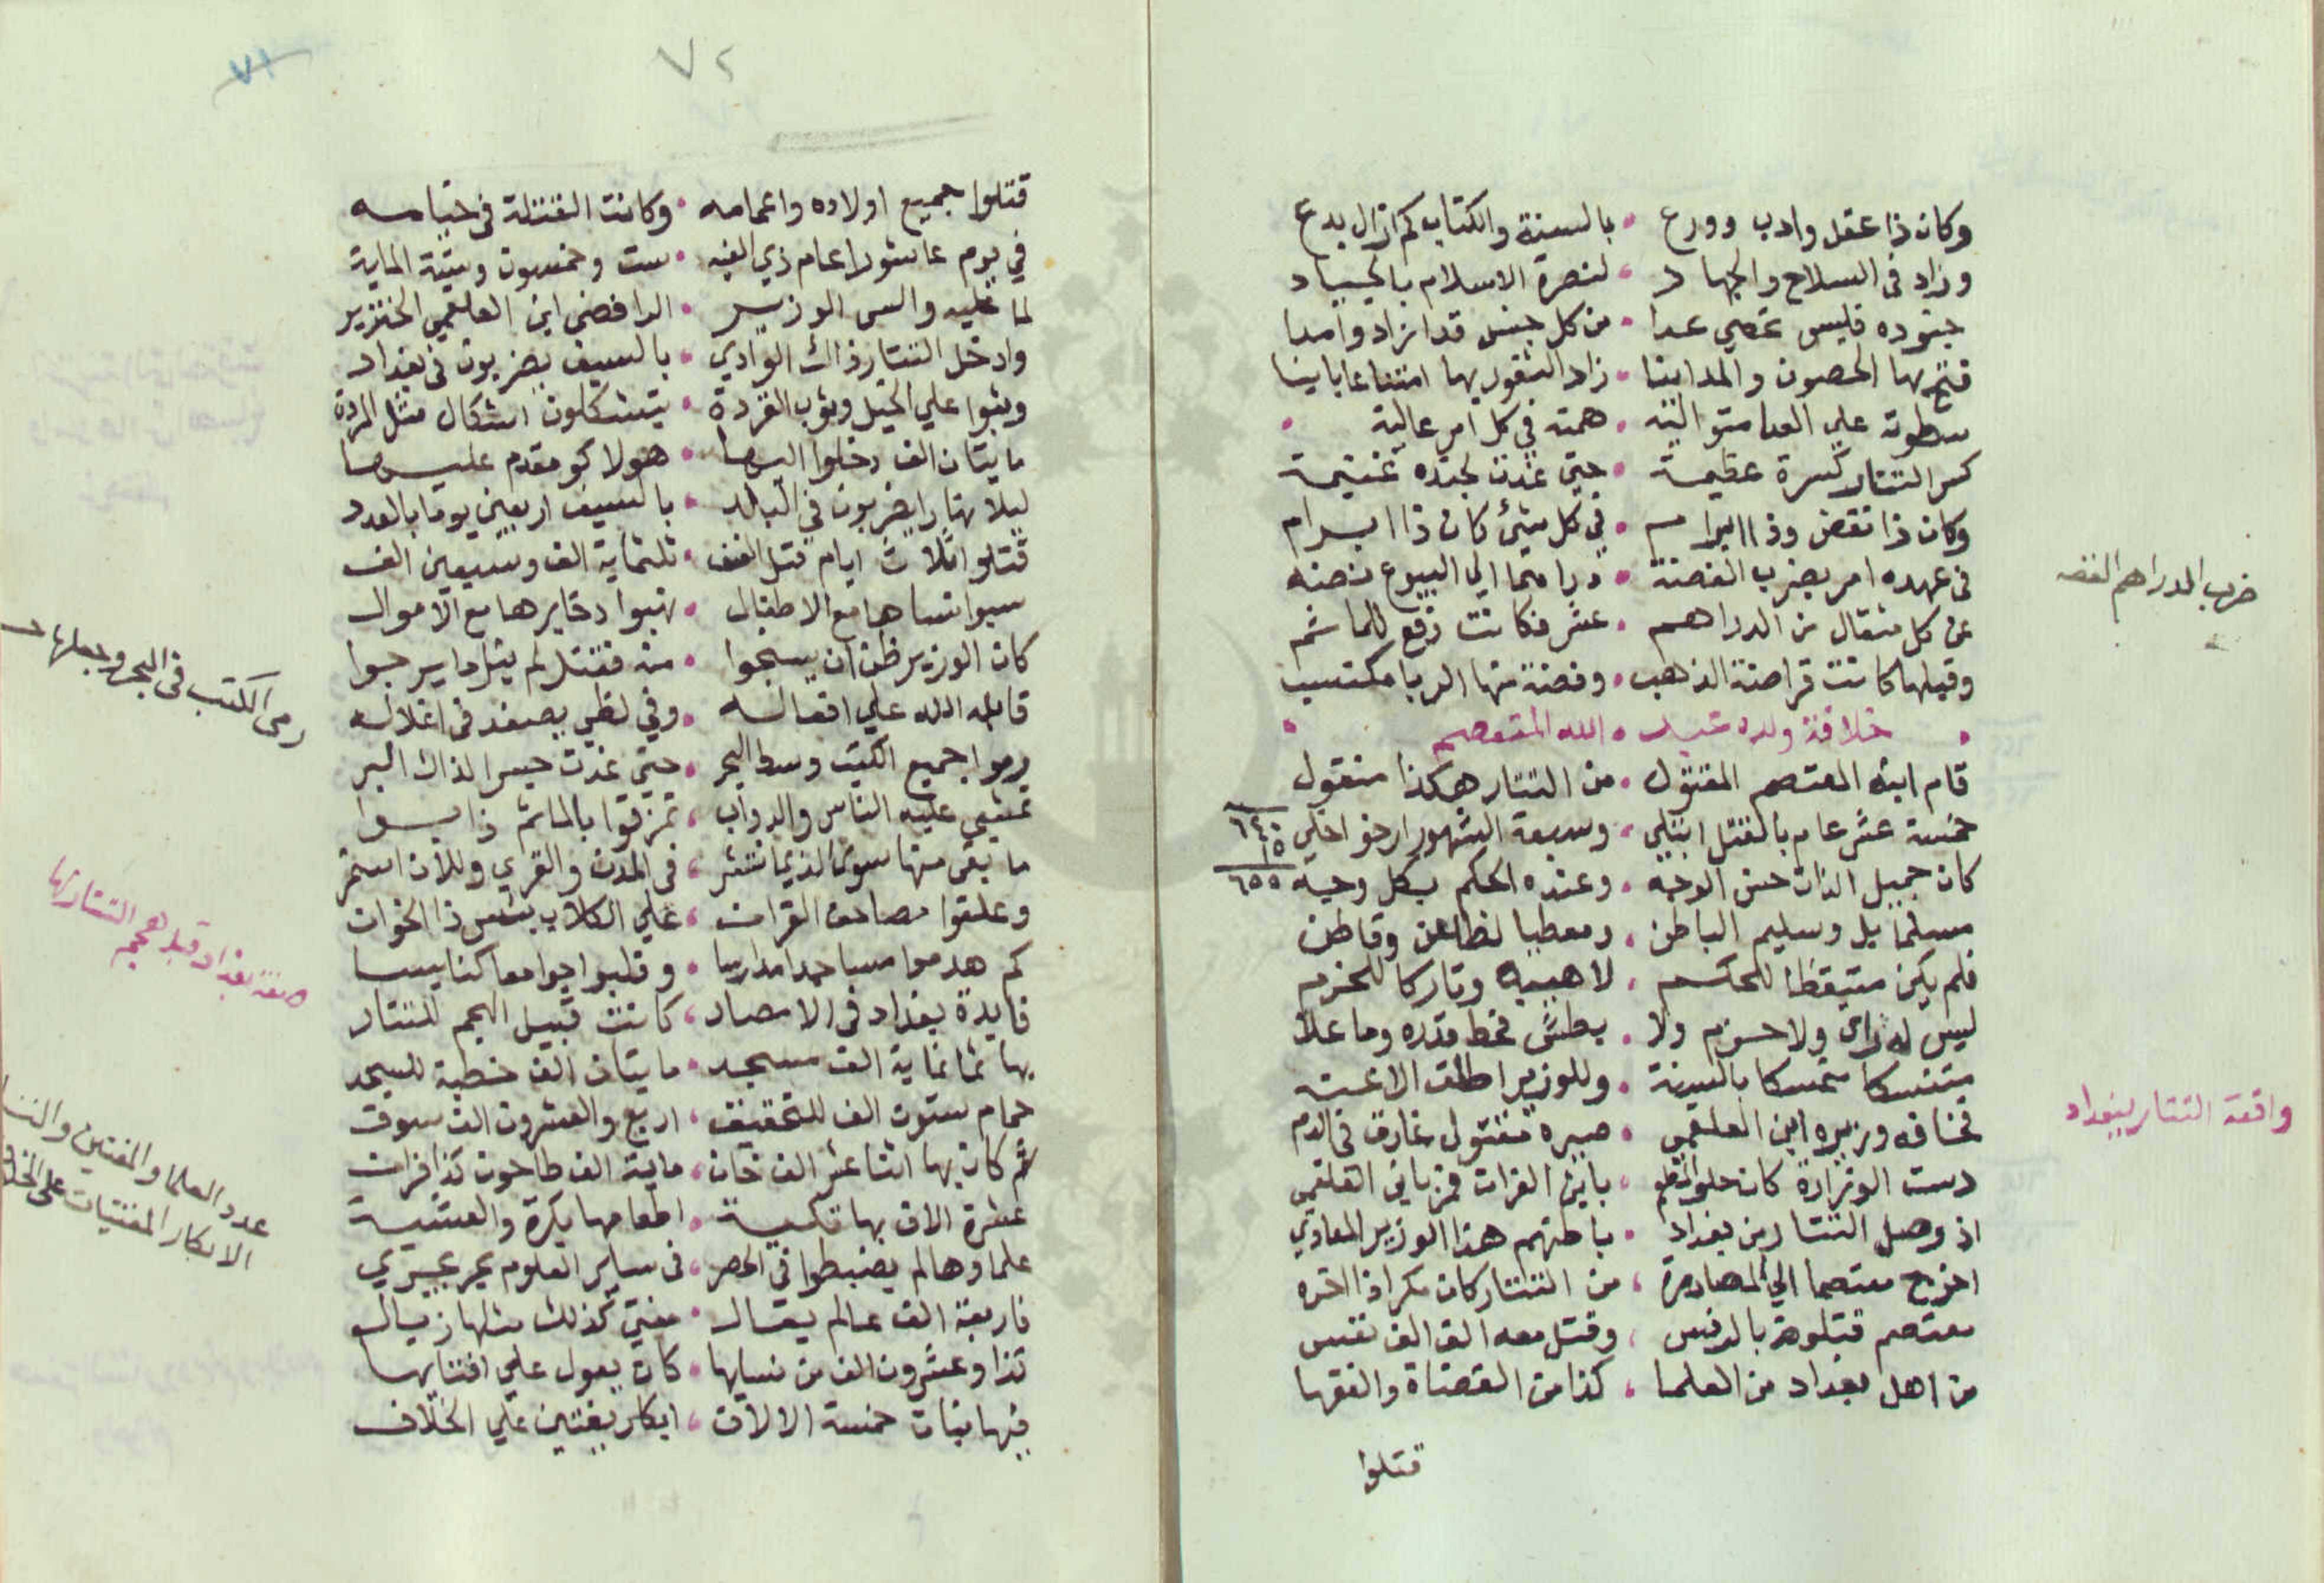 وكان ذا عقل وادب وورع • بالسنة والكتاب كم ازال بدع
وزاد في السلاح والجهاد • لنصرة الاسلام بالجياد
جنوده فليس تحصي عدا • من كل جنس قد ازاد وامدا
فتح بها الحصون والمداينا • زاد الثغور بها امتناعا باينا
سطوته علي العدا متواليه • همته في كل امر عالية
كسر التتار كسرة عظيمة • حتي غدت لجنده غنيمة
وكان ذا نقض وذا ابرام • في كل شئ كان ذا ابرام
في عهده امر بضرب الفضة • دراهما الي البيوع نصه
عن كل مثقال من الدراهم • عشر فكانت رفع للماثم
وقبلها كانت قراضة الذهب • وفضة منها الربا مكتسب
خلافة ولده عبد • الله المتعصم
قام ابنه المعتصم المقتول • من التتار هكذا منقول
خمسة عشر عام بالقتل ابتلي • وسبعة الشهور ارخو اخلي
٦٤٠
١٥
٦٥٥
كان جميل الذات حسن الوجه • وعنده الحكم بكل وجه
مسلما بل وسليم الباطن • ومعطيا لظاعن وقاطن
فلم يكن متيقظا للحكم • لا هيبه وتاركا للحزم
ليس له راي ولا حزم ولا • بطش فحط قدره وما علا
متنسكا متمسكا بالسنة • وللوزير اطلق الاعنه
فخافه وزيره ابن العلقمي • صيره مقتول غارق في الدم
دست الوزارة كان حلو • بابن الفرات فمز بابن العلقمي
اذ وصل التتار من بغداد • باطنهم هذا الوزير المعادي
اخرج معتصما الي المصادرة • من التتار كان مكرا
معتصم قتلوه بالرفس • وقتل معه الف الف نفس
من اهل بغداد من العلما • كذا من القضاة والفقها
قتلوا
ضرب الدراهم الفضه
واقعة التتار ببغداد
٧٢
٧١
قتلوا جميع اولاده واعمامه • وكانت القتلة في ختامه
في يوم عاشورا عام ذي • ست وخمسون وستة الماية
لما عليه والس الوزير • الرافضي ابن العلقمي الخنزير
وادخل التتار ذاك الوادي • بالسيف يضربون في بغداد
وثبوا علي الخيل وثوب القردة • يتشكلون اشكال مثل المردة
مايتان الف دخلوا اليها • هولاكو مقدم عليها
ليلا نهارا يضربون في البلد • بالسيف اربعين يوما بالعدد
قتلوا ثلاث ايام قتل العنف • ثلثماية الف وسبعين الف
سبوا نساها مع الاطفال • نهبوا دخايرها مع الاموال
كان الوزير ظن ان ينجوا • منه فقتل لم ينل ما يرجوا
قابله الله علي افعاله • وفي لظي يصفد في اغلاله
رموا جميع الكتب وسط البحر • حتي غدت جسرا لذاك البر
تمشي عليه الناس والدواب • تمزقوا بالماثم ذابوا
ما بقي منها سوي الذي انتشر • في المدن والقري وللان استمر
وعلقوا مصاحف القران • علي الكلاب بئس ذا الخوان
كم هدموا مساجدا مدارسا • وقلبوا جوامعا كنايسا
فايدة بغداد في الامصار • كانت قبيل الهجم للتتار
بها ثمانماية الف مسجد • مايتان الف خطبة للسجد
حمام ستون الف للتحقيق • اربع والعشرون الف سوق
ثم كان بها اثنا عشر الف خان • ماية الف طاحون كذا فران
عشرة الاف بها تكية • اطعامها بكرة والعشية
علماوها لم يضبطوا في الحصر • في ساير العلوم بحر يجري
فاربعة الف عالم يقال • مفتي كذلك مثلها رجال
كذا وعشرون الف من نسايها • كان يعول علي افتايها
فيها بنات خمسة الالاف • ابكار يفتين علي الخلاف
رمي الكتب في البحر وجعلها
صفة بغداد قبل هجم التتار لها
عدد العلما والمفتين والنسا
الابكار المفتيات علي الخلاف